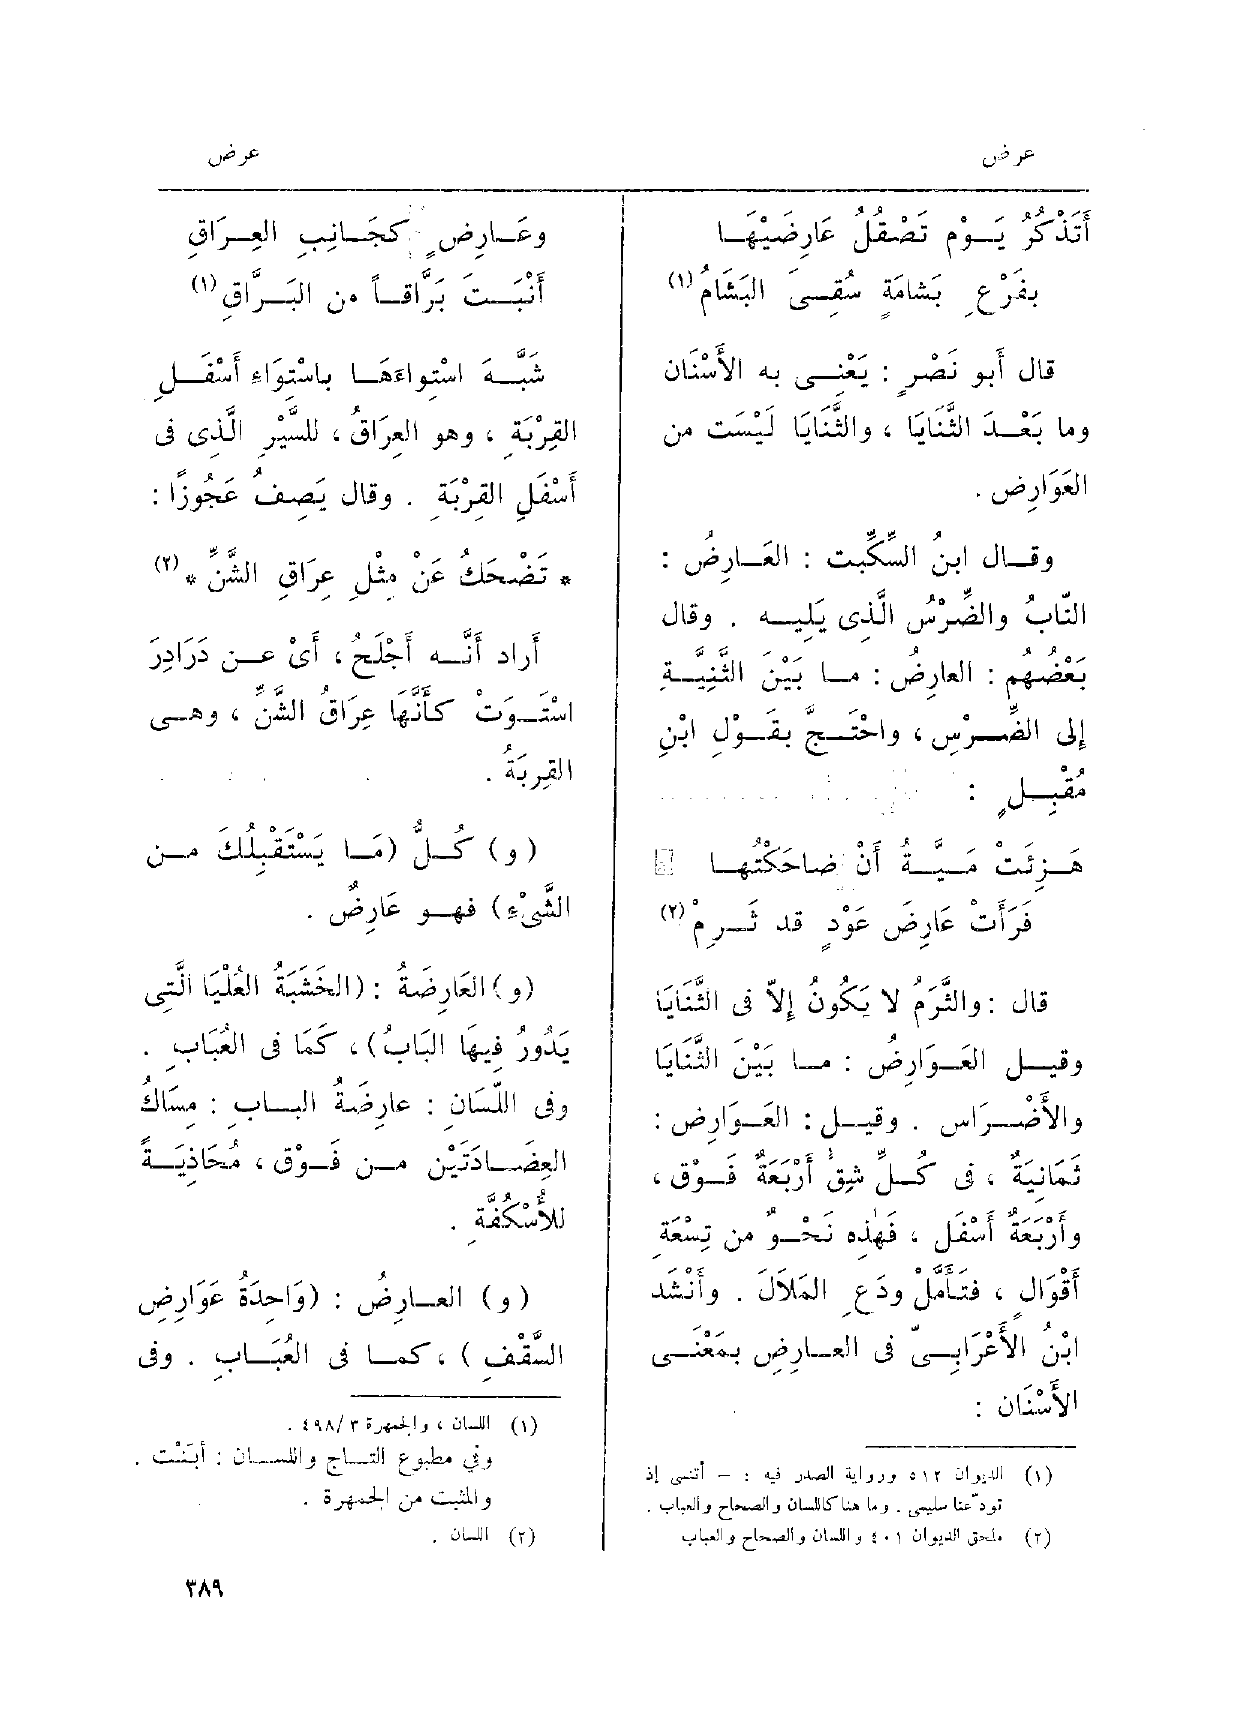 عرض
عرض
أَتَذْكُرُ يَـوْم تَصْقُلُ عَارِضَيْهَـا
بفَرْعِ بَشَامَةٍ سُقِـىَ البَشَامُ(١)
قال أَبو نَصْرٍ : يَعْنِـى به الأَسْنَان
وما بَعْـدَ الثَّنَايَا ، والثَّنَايَا لَيْسَت من
العَوَارِض .
وقـال ابنُ السِّكِّيت : العَـارِضُ :
النّابُ والضِّرْسُ الَّذى يَلِيـه . وقال
بَعْضُهم : العارِضُ : مـا بَيْنَ الثَّنِيَّـةِ
إِلى الضِّـرْسِ ، واحْتَـجَّ بقَـوْلِ ابْنِ
مُقْبِـلٍ :
هَـزِئَت مَـيَّـةُ أَنْ ضاحَكْتُهـا
فَرَأَتْ عَارِضَ عَوْدٍ قد ثَـرِمْ(٢)
قال : والثَّرَمُ لا يَكُونُ إِلاّ فى الثَّنَايَا
وقيـل العَـوَارِضُ : مـا بَيْنَ الثَّنَايَا
والأَضْـرَاس . وقيـل : العَـوَارِض :
ثَمَانِيَةٌ ، فى كـلِّ شِقٍّ أَرْبَعَةٌ فَـوْق ،
وأَرْبَعَةٌ أَسْفَل ، فَهٰذِه نَحْـوٌ من تِسْعَةِ
أَقْوَالٍ ، فتَأَمَّلْ ودَعِ المَلاَلَ . وأَنْشَد
ابْنُ الأَعْرَابِـىّ فى العـارِضِ بمَعْنَـى
الأَسْنَان :
(١) الديوان ٥١٢ ورواية الصدر فيه : – أتنسى إذ
تودّعنا سليمى . وما هنا كاللسان والصحاح والعباب .
(٢) ملحق الديوان ٤٠١ واللسان والصحاح والعباب
وعَـارِضٍ كجَـانِبِ العِـرَاقِ
أَنْبَـتَ بَرَّاقـاً من البَـرَّاقِ(١)
شَبَّـهَ اسْتِواءَهَـا باسْتِوَاءِ أَسْفَـلِ
القِرْبَةِ ، وهو العِرَاقُ ، للسَّيْرِ الَّذِى فى
أَسْفَلِ القِرْبَةِ . وقال يَصِفُ عَجُوزًا :
* تَضْحَكُ عَنْ مِثْلِ عِرَاقِ الشَّنِّ *(٢)
أَراد أَنَّـه أَجْلَحُ ، أَىْ عـن دَرَادِرَ
اسْتَـوَتْ كأَنَّهَا عِرَاقُ الشَّنِّ ، وهـى
القِربَةُ .
(و) كُـلُّ (مَـا يَسْتَقْبِلُكَ مـن
الشَّىْءِ) فهـو عَارِضٌ .
(و) العَارِضَةُ : (الخَشَبَةُ العُلْيَا الَّتِى
يَدُورُ فِيهَا البَابُ) ، كَمَا فى العُبَابِ .
وفى اللِّسَان : عارِضَةُ البـابِ : مِسَاكُ
العِضَـادَتَيْن مـن فَـوْق ، مُحَاذِيَـةً
للأُسْكُفَّةِ .
(و) العـارِضُ : (وَاحِدَةُ عَوَارِضِ
السَّقْفِ ) ، كمـا فى العُبَـابِ . وفى
(١) اللسان ، والجمهرة ٣ /٤٩٨ .
وفي مطبوع التـاج واللسـان : أبَنَتْ .
والمثبت من الجمهرة .
(٢) اللسان .
٣٨٩